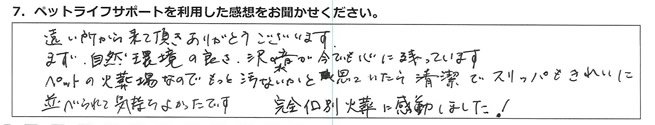 7. ペットライフサポートを利用した感想をお聞かせください。
遠い所から来て頂きありがとうございます
まず、自然環境の良さ、沢の音が今でも心に残っています
ペットの火葬場なのでもっと汚ないかと思っていたら清潔でスリッパもきれいに
並べられて気持ちよかったです 完全個別火葬に感動しました!